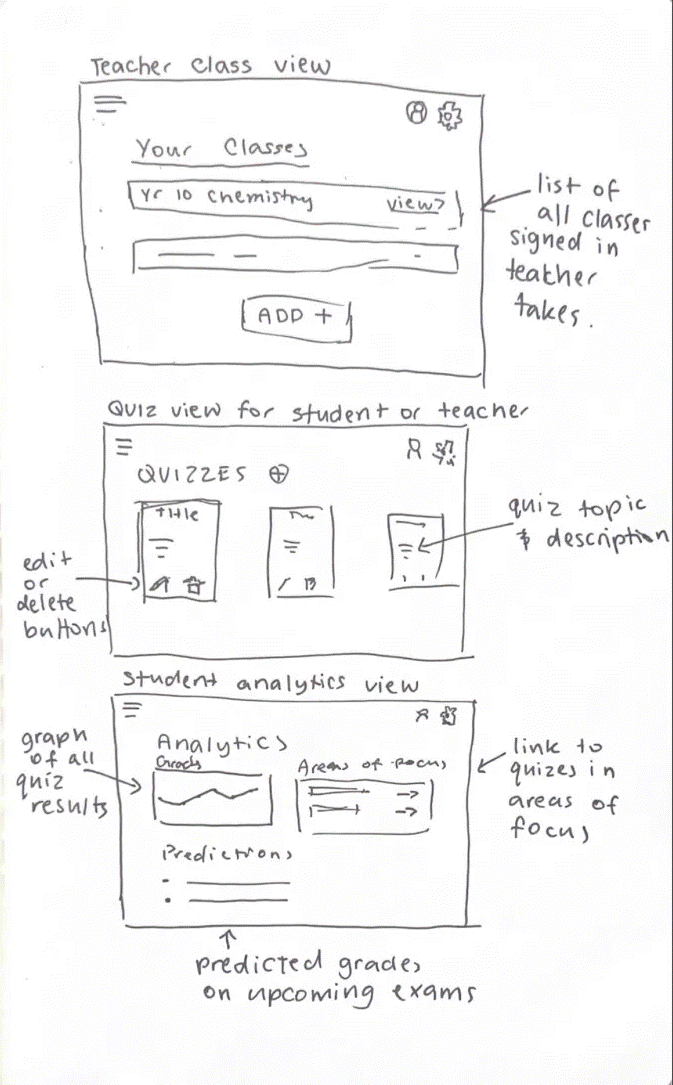 Teacher Class view
Your Classes
Yr 10 Chemistry view>
ADD +
list of
all classes
signed in
teacher
takes.
Quiz view for student or teacher
QUIZZES
title
quiz topic
& description
edit
or
delete
buttons
Student analytics view
Analytics
Areas of focus
graph
of all
quiz
results
link to
quizes in
areas of
focus
Predictions
predicted grades
on upcoming exams